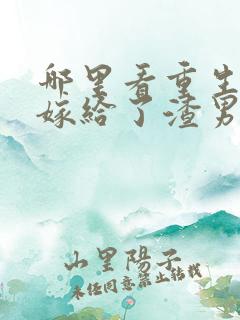 哪里看重生
嫁给了渣男
山里陽子
未经同意禁止转载